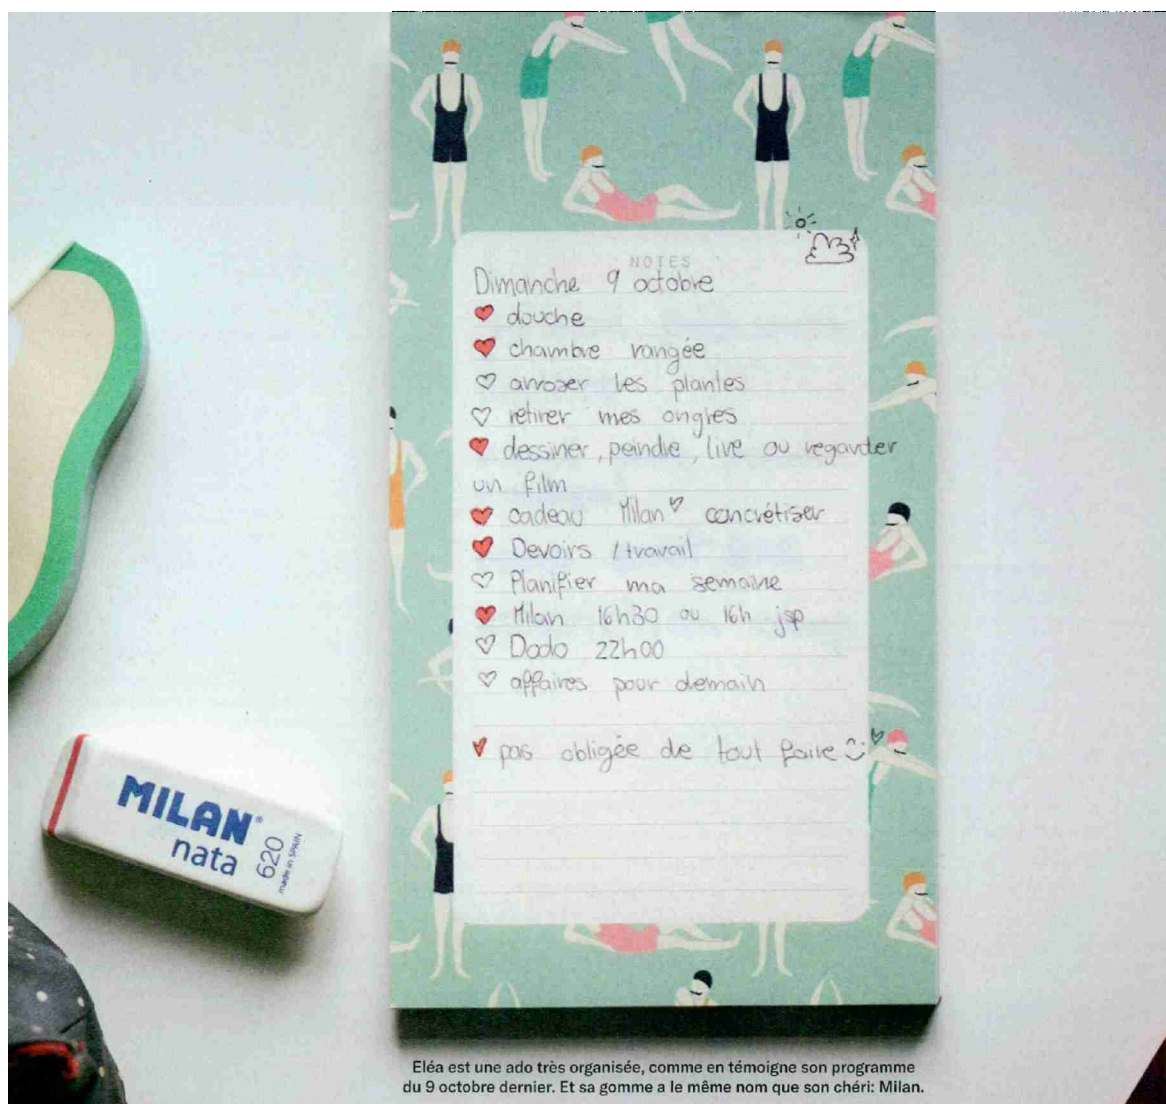 NOTES
Dimanche 9 octobre
douche
chambre rangée
arroser les plantes
retirer mes ongles
dessiner, peindre, lire ou regarder
un film
cadeau Milan concrétiser
Devoirs / travail
Planifier ma semaine
Milan 16h30 ou 16h jsp
Dodo 22h00
affaires pour demain
pas obligée de tout faire
MILAN®
nata
620
made in SPAIN
Eléa est une ado très organisée, comme en témoigne son programme
du 9 octobre dernier. Et sa gomme a le même nom que son chéri: Milan.